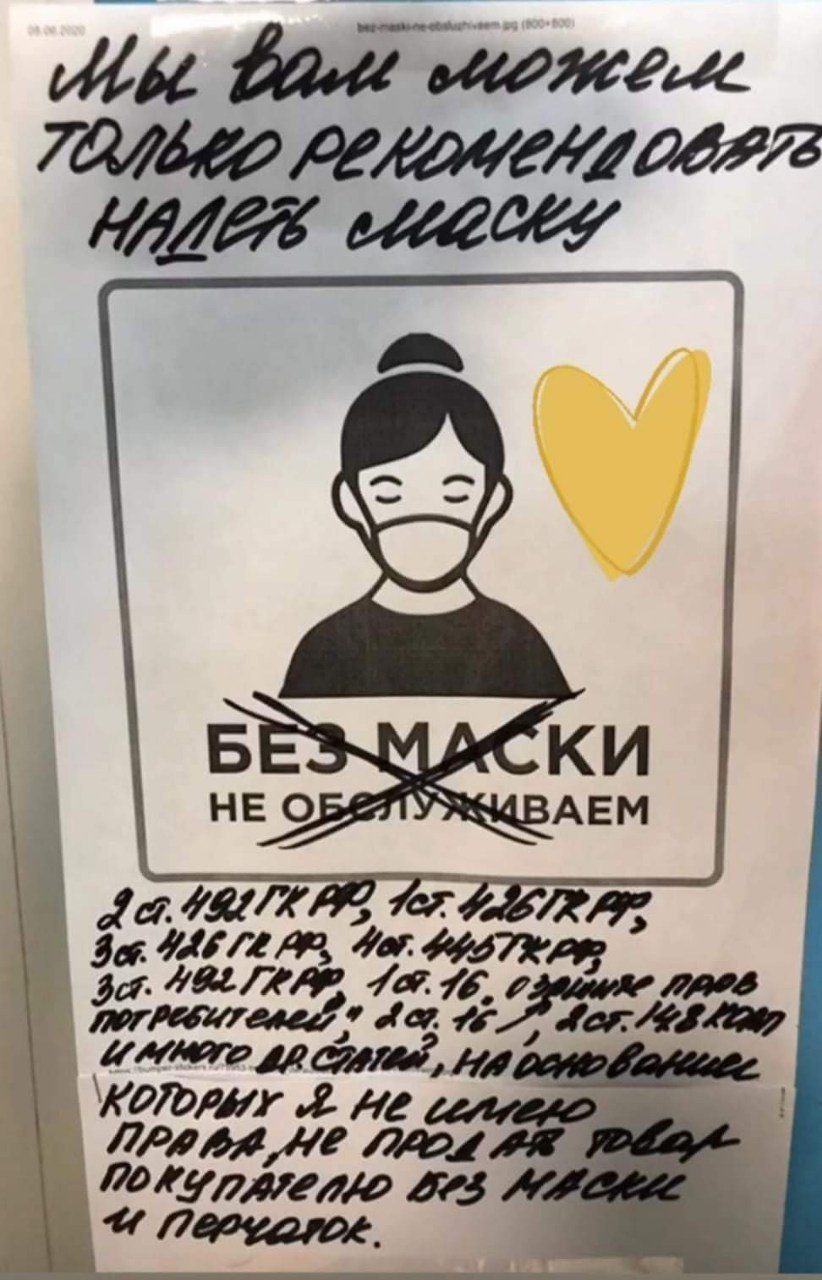 08.06.2020
bez-maski-ne-obsluzhivaem.jpg (800×800)
Мы вам можем
только рекомендовать
надеть маску
БЕЗ МАСКИ
НЕ ОБСЛУЖИВАЕМ
2 ст. 492 ГК РФ, 1 ст. 426 ГК РФ,
3 ст. 426 ГК РФ, 4 ст. 445 ГК РФ,
3 ст. 492 ГК РФ, 1 ст. 16. о защите прав
потребителей", 2 ст. 16, 2 ст. 14.8 КОАП
и много др. статей, на основании
которых я не имею
права, не продать товар
покупателю без маски
и перчаток.